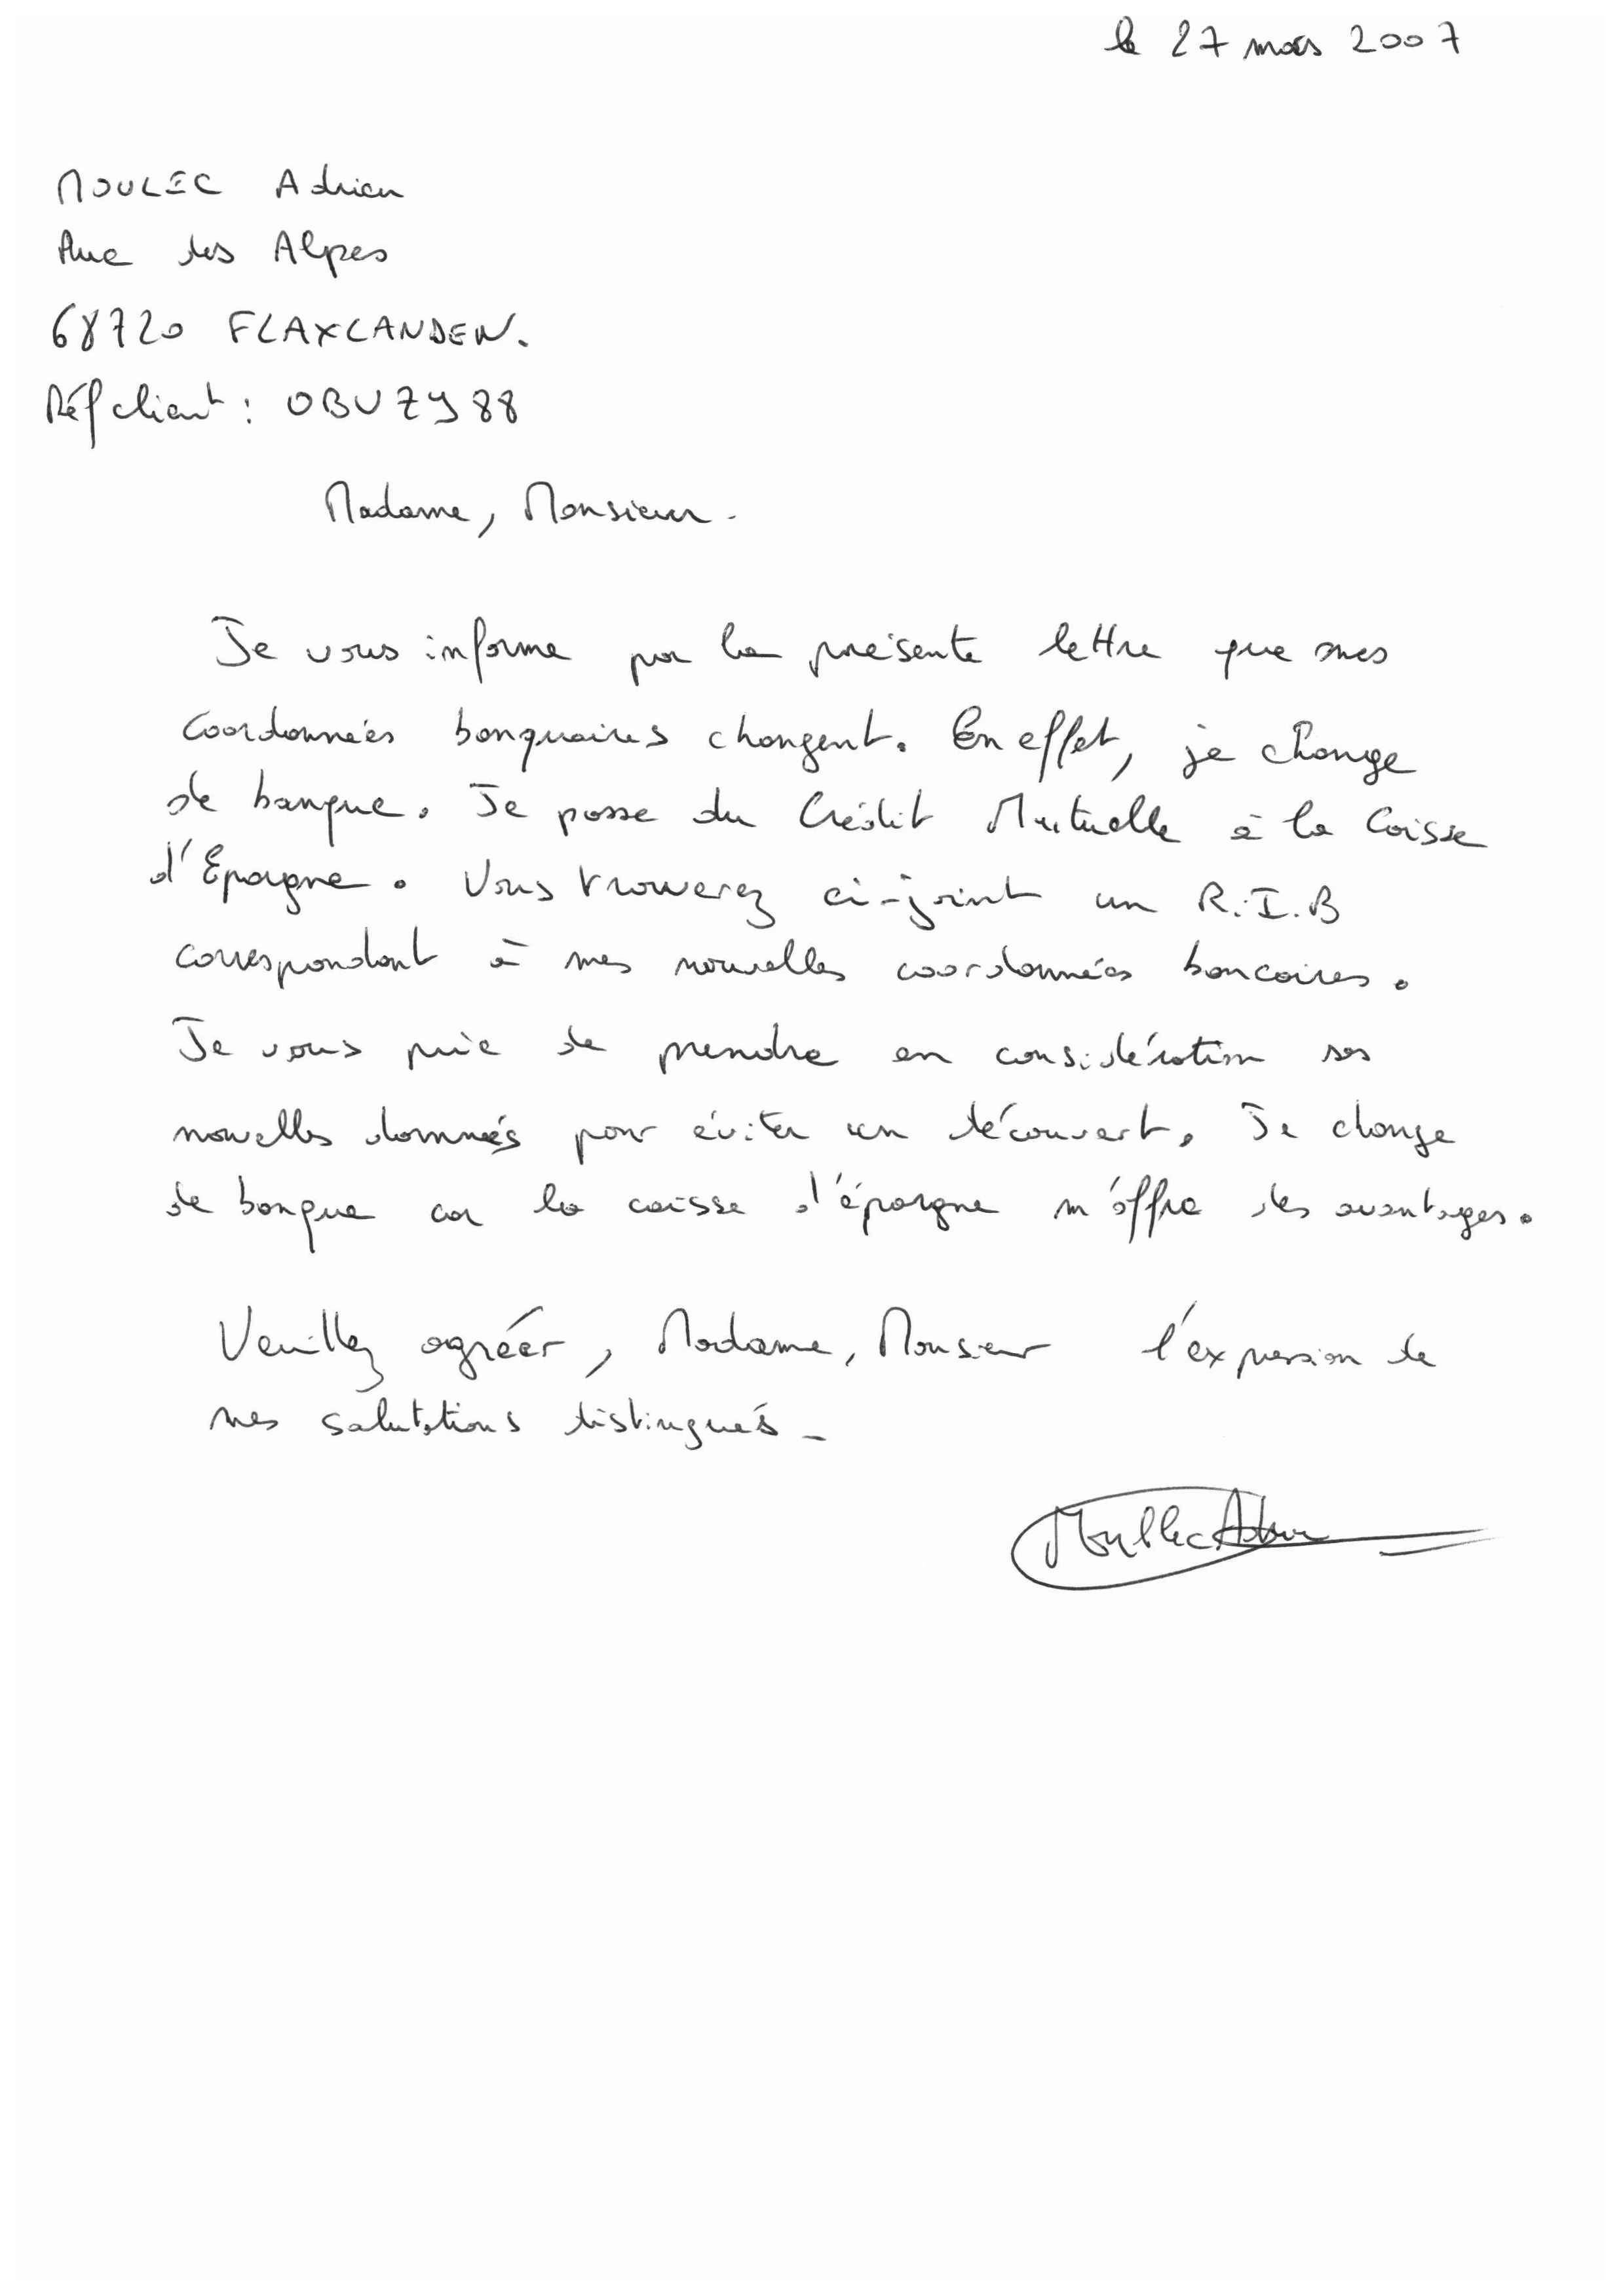 le 27 mars 2007
MOULEC Adrien
Rue des Alpes
68720 FLAXLANDEN.
Réf client : OBUZY88
Madame, Monsieur.
Je vous informe par la présente lettre que mes
coordonnées banquaires changent. En effet, je change
de banque. Je passe du Crédit Mutuelle à la Caisse
d'Epargne. Vous trouverez ci-joint un R.I.B
correspondant à mes nouvelles coordonnées bancaires.
Je vous prie de prendre en considération ses
nouvelles données pour éviter un découvert. Je change
de banque car la caisse d'épargne m'offre des avantages.
Veuillez agréer, Madame, Monsieur l'expression de
mes salutations distingués -